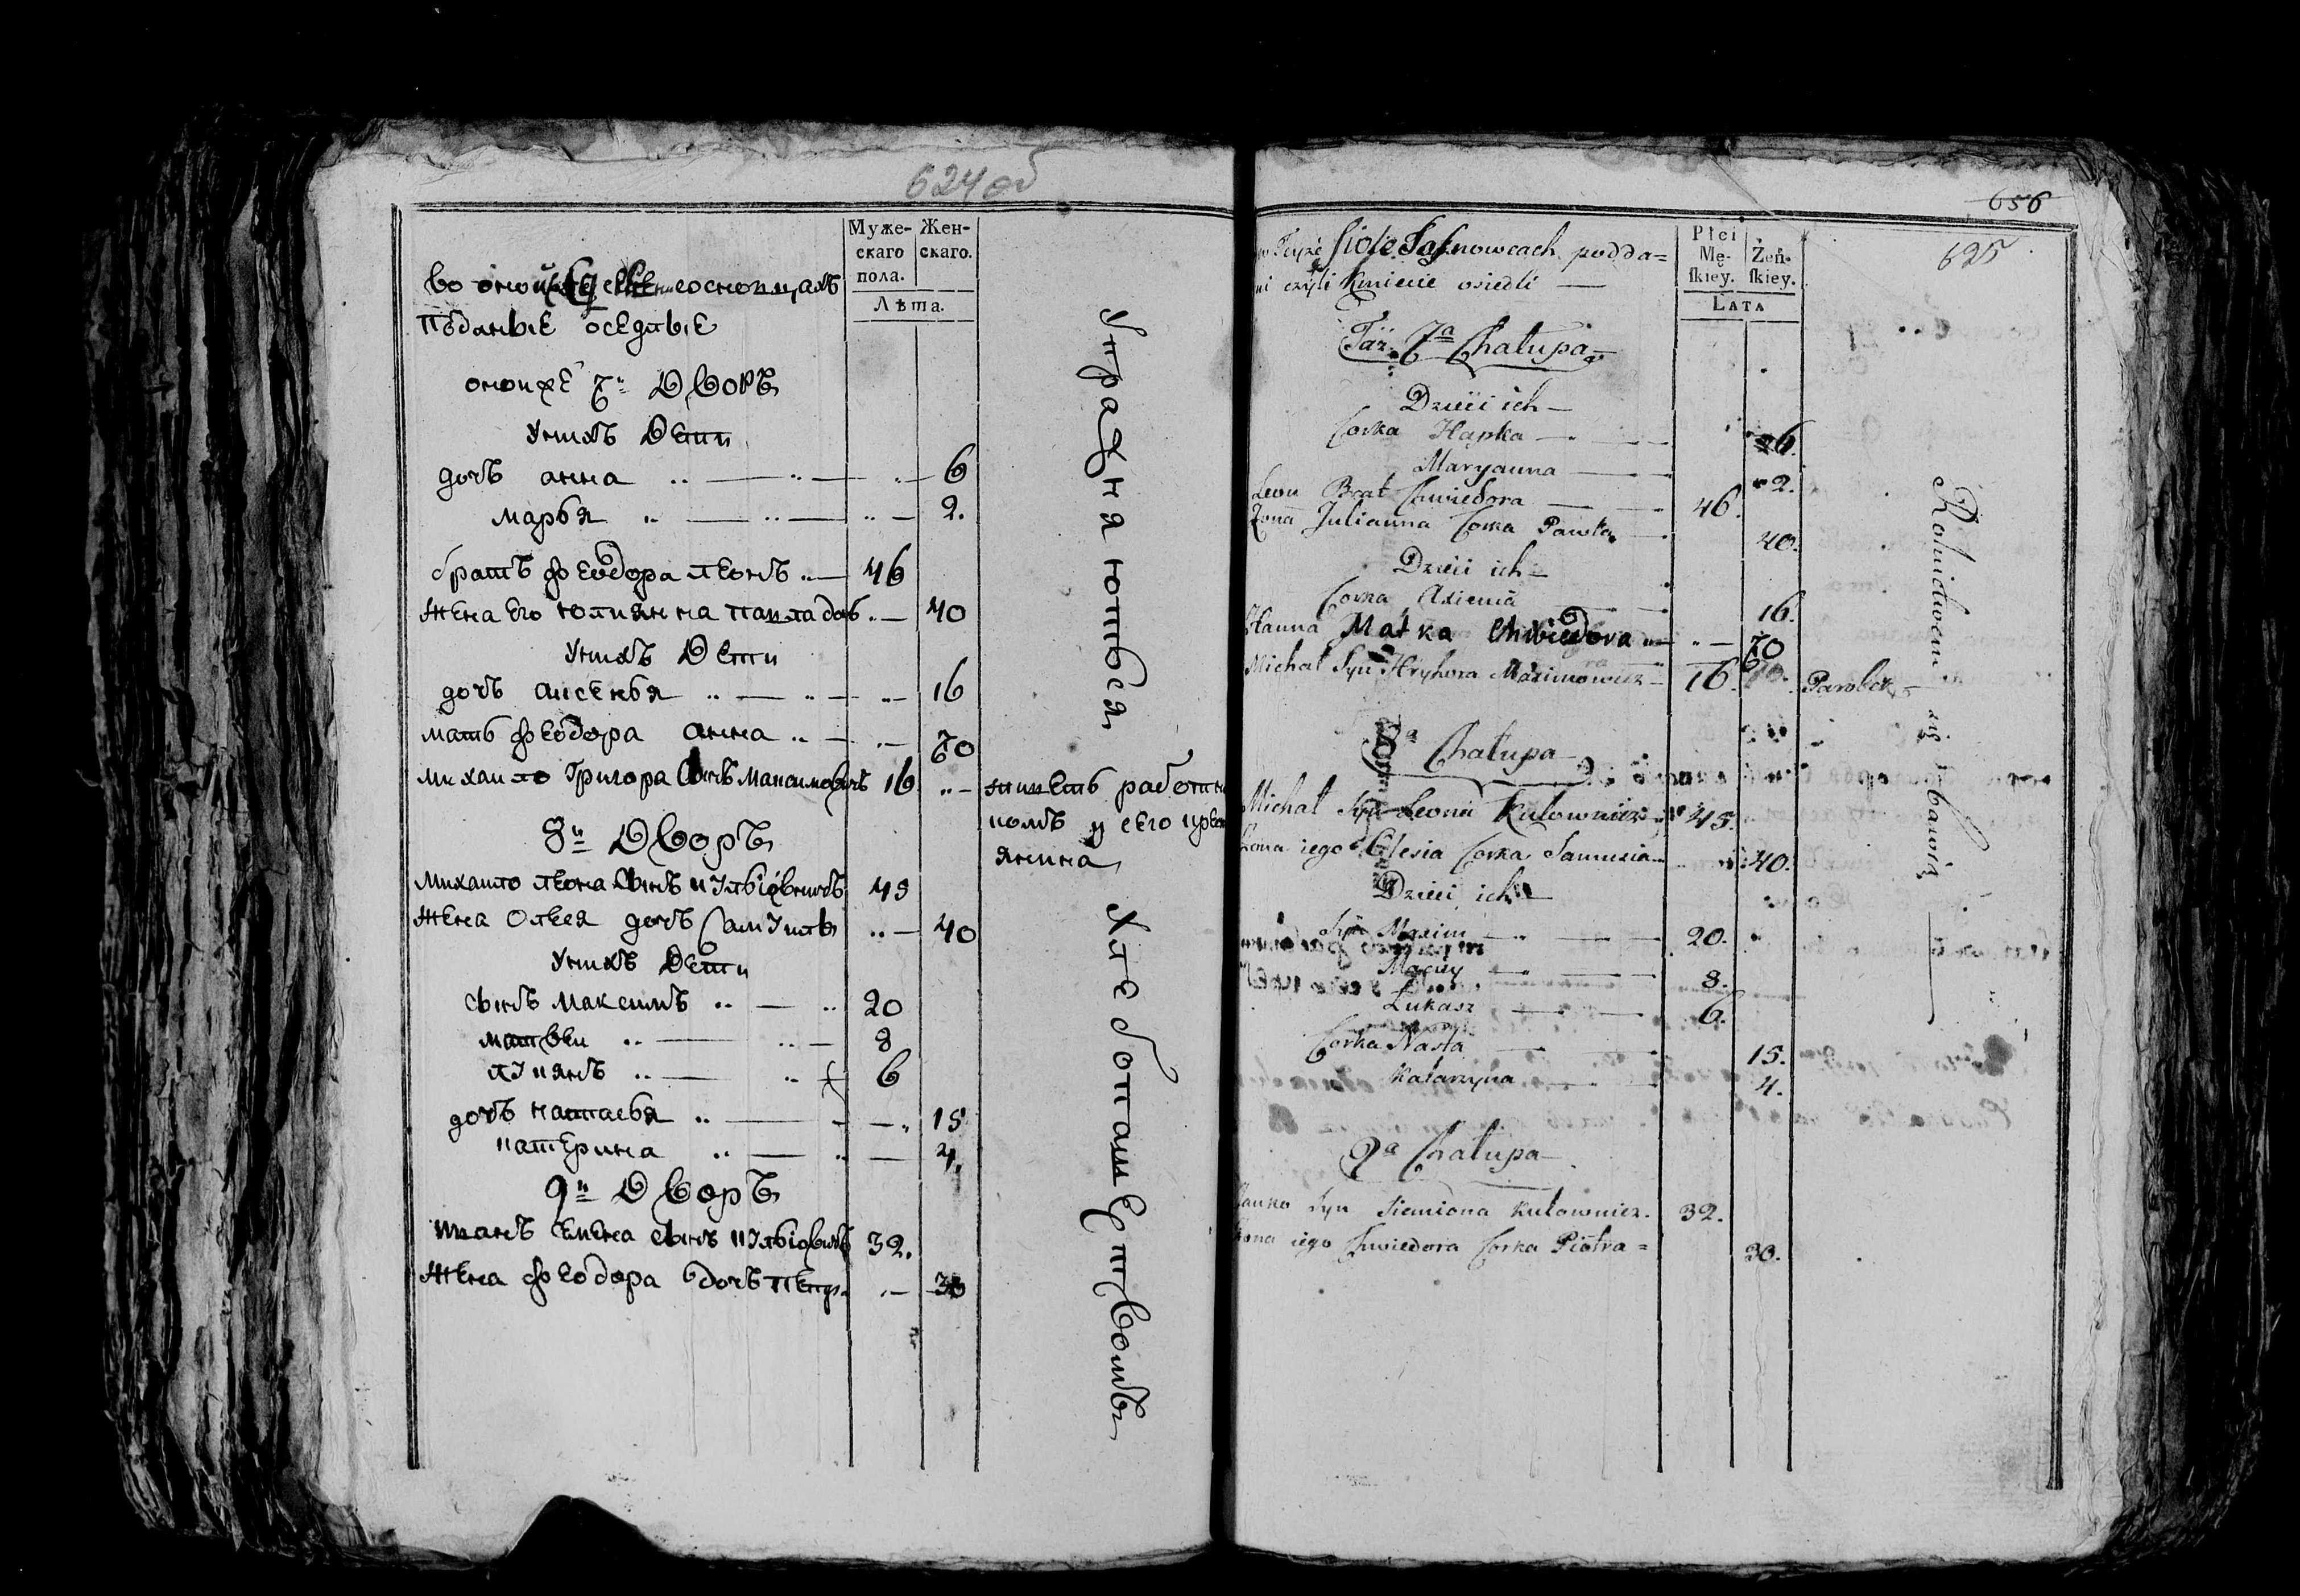 624 об
Муже-
скаго
пола.
Жен-
скаго.
Лѣта.
во оной
поданые оседлые
онои же 7й дворъ
У нихъ дети
дочь анна 6
марья 2.
братъ феодора леонъ 46
жена его юлиянна павла дочь 40
У нихъ дети
дочь аксенья 16
мать феодора анна 70
михаило григора сынъ максимовичъ 16 живетъ работни
комъ у сего кресть
янина
8й дворъ
михаило леона сынъ кулювничъ 45
жена олеся дочь самуила 40
У нихъ дети
сынъ максимъ 20
матвеи 8
лукянъ 6
дочь настасья 15
катерина 4.
9й дворъ
иванъ семена сынъ кулювничъ 32.
жена феодора дочь петра 30
Упражняются
Хлебопашептвомъ
656
625
w teyże siole Sosnowcach podda=
ni czyli Kmiecie osiedli
Płci
Mę-
skiey.
Żeń-
skiey.
LATA
Taż 7a Chałupa
Dzieci ich
Corka Hapka 6.
Maryanna 2.
Leon Brat Chwiedora 46.
Żona Julianna Corka Pawła 40.
Dzieci ich
Corka Axienia 16.
Hanna Matka Chwiedora 70
Michał Syn Hryhora Maximowicz 16. Parobek
8a Chałupa
Michał Syn Leona Kulownicz 45.
Żona iego Olesia Corka Samusia 40.
Dzieci ich
Syn Maxim 20.
Maciey 8.
Łukasz 6.
Corka Nasta 15.
Katarzyna 4.
9a Chałupa
Janko Syn Siemiona Kulownicz. 32.
Żona iego Chwiedora Corka Piotra= 30.
Rolnictwem się bawią